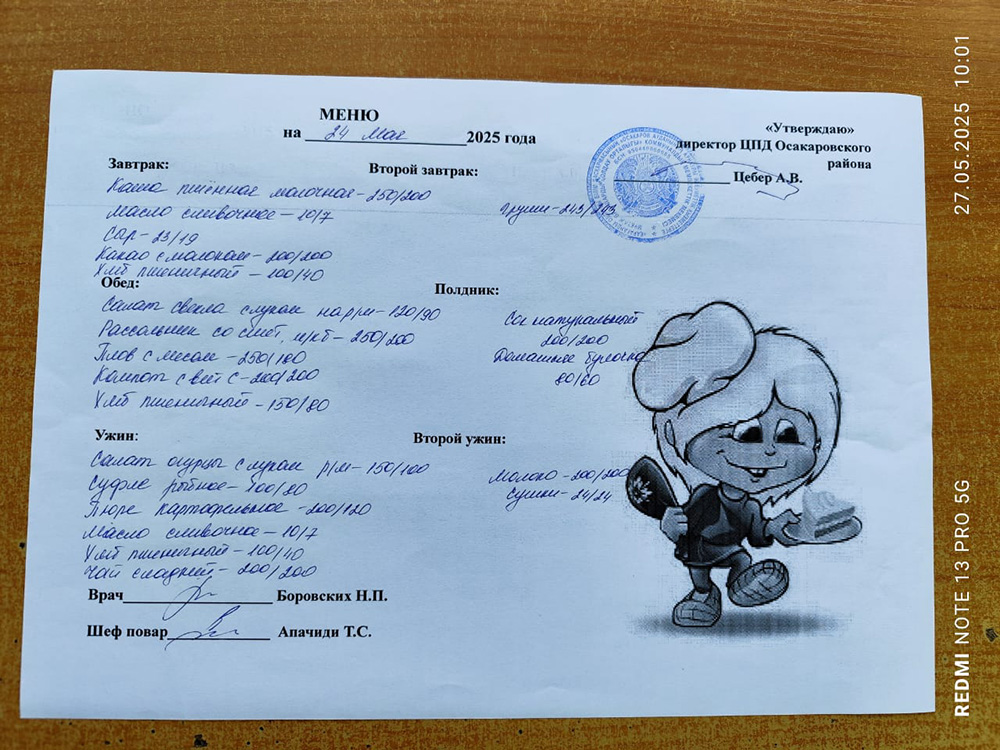 МЕНЮ
на 24 Мая 2025 года
«Утверждаю»
директор ЦПД Осакаровского
района
Цебер А.В.
Завтрак:
Каша пшённая молочная-250/200
Масло сливочное-10/7
Сыр-23/19
Какао с молоком-200/200
Хлеб пшеничный-100/40
Второй завтрак:
Груши-243/243
Обед:
Салат свекла с луком на р/м-120/90
Рассольник со смет, м/кт-250/200
Плов с мясом-250/180
Компот с вит С-200/200
Хлеб пшеничный-150/80
Полдник:
Сок натуральный
200/200
Домашние булочки
80/60
Ужин:
Салат огурцы с луком р/м-150/100
Суфле рыбное-100/80
Пюре картофельное-200/120
Масло сливочное-10/7
Хлеб пшеничный-100/40
Чай сладкий-200/200
Второй ужин:
Молоко-200/200
Сушки-24/24
Врач Боровских Н.П.
Шеф повар Апачиди Т.С.
REDMI NOTE 13 PRO 5G
27.05.2025 10:01